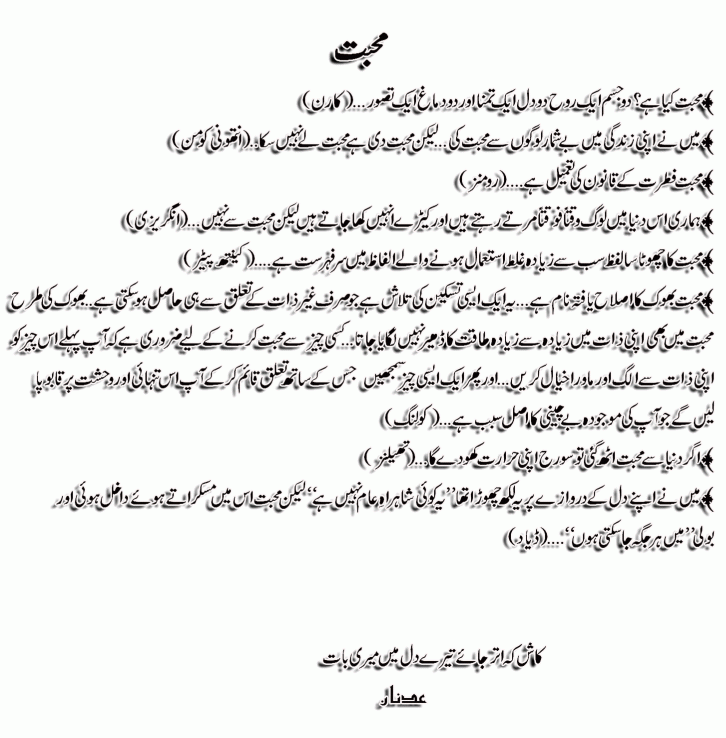 محبت
محبت کیا ہے؟ دو جسم ایک روح دو دل ایک تمنا اور دو دماغ ایک تصور...(کارن)
میں نے اپنی زندگی میں بے شمار لوگوں سے محبت کی...لیکن محبت دی ہے محبت لے نہیں سکا..(انتھونی کومن)
محبت فطرت کے قانون کی تعمیل ہے....(رومنز)
ہماری اس دنیا میں لوگ وقتاً فوقتاً مرتے رہتے ہیں اور کیڑے انہیں کھا جاتے ہیں لیکن محبت سے نہیں...(انگریزی)
محبت کا چھوٹا سا لفظ سب سے زیادہ غلط استعمال ہونے والے الفاظ میں سر فہرست ہے....(کیتھ پیٹر)
محبت بھوک کا اصلاح یافتہ نام ہے...یہ ایک ایسی تسکین کی تلاش ہے جو صرف غیر ذات کے تعلق سے ہی حاصل ہو سکتی ہے..بھوک کی طرح
محبت میں بھی اپنی ذات میں زیادہ سے زیادہ طاقت کا ڈھیر نہیں لگایا جاتا...کسی چیز سے محبت کرنے کے لیے ضروری ہے کہ آپ پہلے اس چیز کو
اپنی ذات سے الگ اور ماورا خیال کریں...اور پھر ایک ایسی چیز سمجھیں جس کے ساتھ تعلق قائم کر کے آپ اس تنہائی اور وحشت پر قابو پا
لیں گے جو آپ کی موجودہ بے چینی کا اصل سبب ہے...(کولنگ)
اگر دنیا سے محبت اٹھ گئی تو سورج اپنی حرارت کھو دے گا...(تھیلز)
میں نے اپنے دل کے دروازے پر یہ لکھ چھوڑا تھا’’یہ کوئی شاہراہ عام نہیں ہے‘‘لیکن محبت اس میں مسکراتے ہوئے داخل ہوئی اور
بولی’’میں ہر جگہ جا سکتی ہوں‘‘....(ڈیاد)
کاش کہ اتر جائے تیرے دل میں میری بات